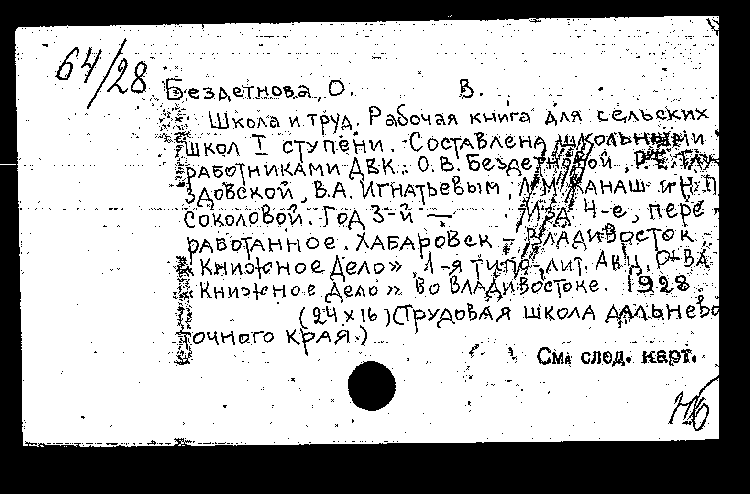 64/28
Бездетнова, О. В.
Школа и труд. Рабочая книга для сельских
школ I ступени. Составлена школьными
работниками ДВК: О.В. Бездетновой,
здовской, В.А. Игнатьевым, Канаш и Н.П.
Соколовой. Год 3-й — Изд. 4-е, пере-
работанное. Хабаровск – Владивосток
"Книжное Дело", 1-я типо-лит. Акц. О-ва
"Книжное Дело" во Владивостоке. 1928
(24x16) (Трудовая школа дальнево
точного края.)
См. след. карт.